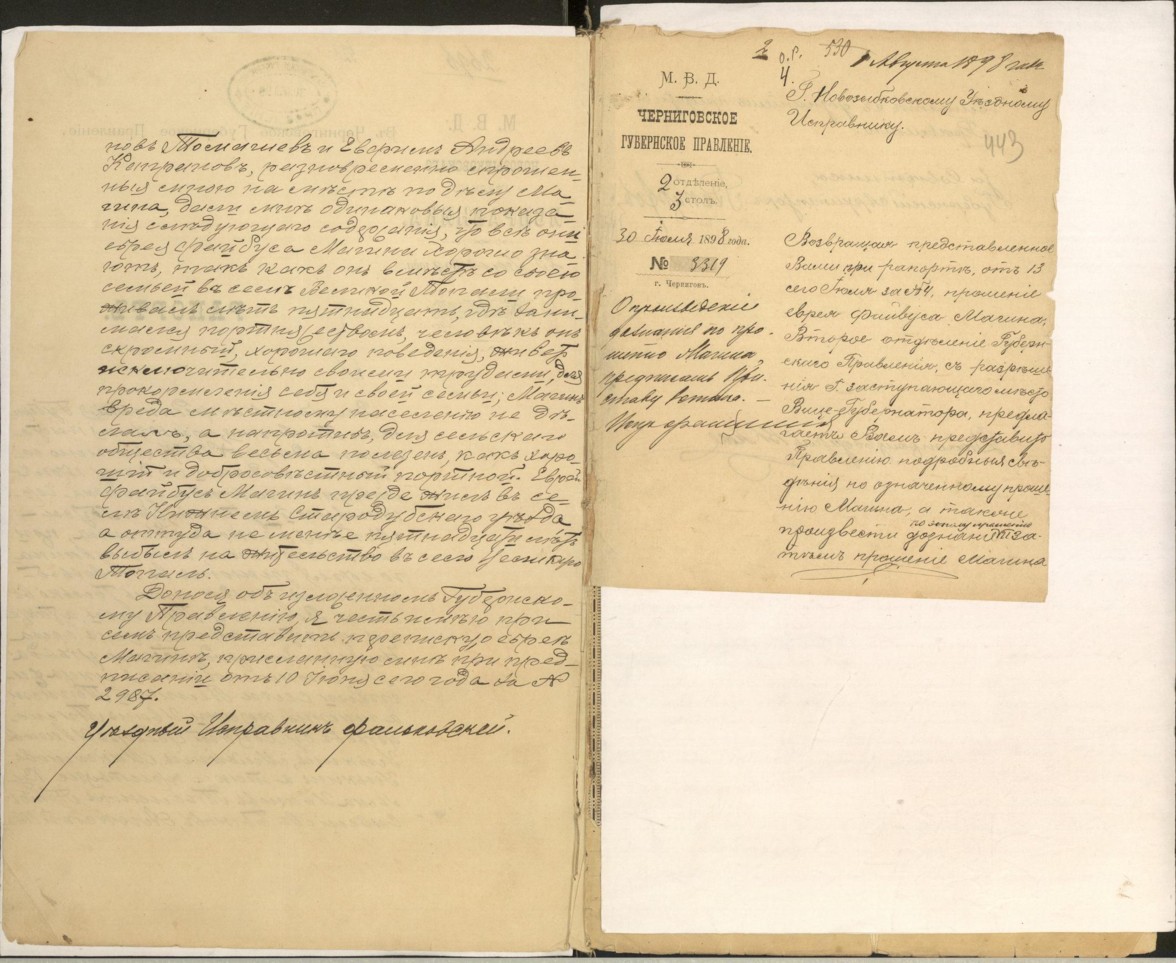 новъ Томашевъ и Евфимъ Андреевъ
Капрановъ, разновременно спрошен-
ныя мною на мѣстѣ по дѣлу Ма-
гина, дали мнѣ одинаковыя показа-
нія слѣдующаго содержанія, что всѣ они
еврея Файбуса Магина хорошо зна-
ютъ, такъ какъ онъ вмѣстѣ со своею
семьей въ селѣ Великой Топали про-
живалъ лѣтъ пятнадцать, гдѣ зани-
мался портняжествомъ, человѣкъ онъ
скромный, хорошаго поведенія, живетъ
исключительно своими трудами, для
прокормленія себя и своей семьи; Магинъ
вреда мѣстному населенію не дѣ-
лалъ, а напротивъ, для сельскаго
общества весьма полезенъ, какъ хоро-
шій и добросовѣстный портной. Еврей
Файбусъ Магинъ прежде жилъ въ се-
лѣ Стародубскаго уѣзда
а оттуда не менѣе пятнадцати лѣтъ
выбылъ на жительство въ село Великую
Топаль.
Донося объ изложенномъ Губернско-
му Правленію, я честь имѣю при
семъ представить переписку о евреѣ
Магинѣ, присланную мнѣ при пред-
писаніи отъ 10 Іюня сего года за №
2987.
Уѣздный Исправникъ Фальковскій.
2 О.Р. 530 1 Августа 1898 года
4.
М. В. Д.
ЧЕРНИГОВСКОЕ
ГУБЕРНСКОЕ ПРАВЛЕНІЕ.
2 отдѣленіе,
3 столъ.
30 Іюля 1898 года.
№ 3319
г. Черниговъ.
О произведеніе
дознанія по про-
шенію Магина,
предписать При-
ставу 2 стана. —
Г. Новозыбковскому Уѣздному
Исправнику.
443
Возвращая представленное
Вами при рапортѣ, отъ 13
сего Іюля за №, прошеніе
еврея Файвуса Магина,
Второе отдѣленіе Губерн-
скаго Правленія, съ разрѣше-
нія Г. заступающаго мѣсто
Вице-Губернатора, предла-
гаетъ Вамъ представить
Правленію подробныя свѣ-
дѣнія по означенному проше-
нію Магина, а также
по этому прошенію
произвести дознаніе за-
тѣмъ прошеніе Магина